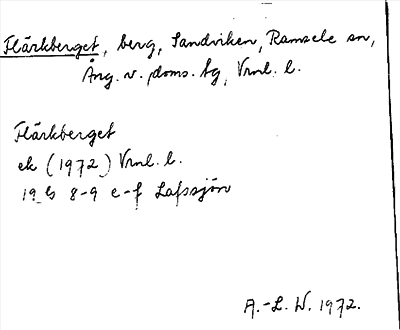 Flärkberget, berg, Sandviken, Ramsele sn,
Ång. v. doms. tg, Vrnl. l.
Flärkberget
ek (1972) Vrnl. l.
19 G 8-9 e-f Lafssjön
A.-L. W. 1972.